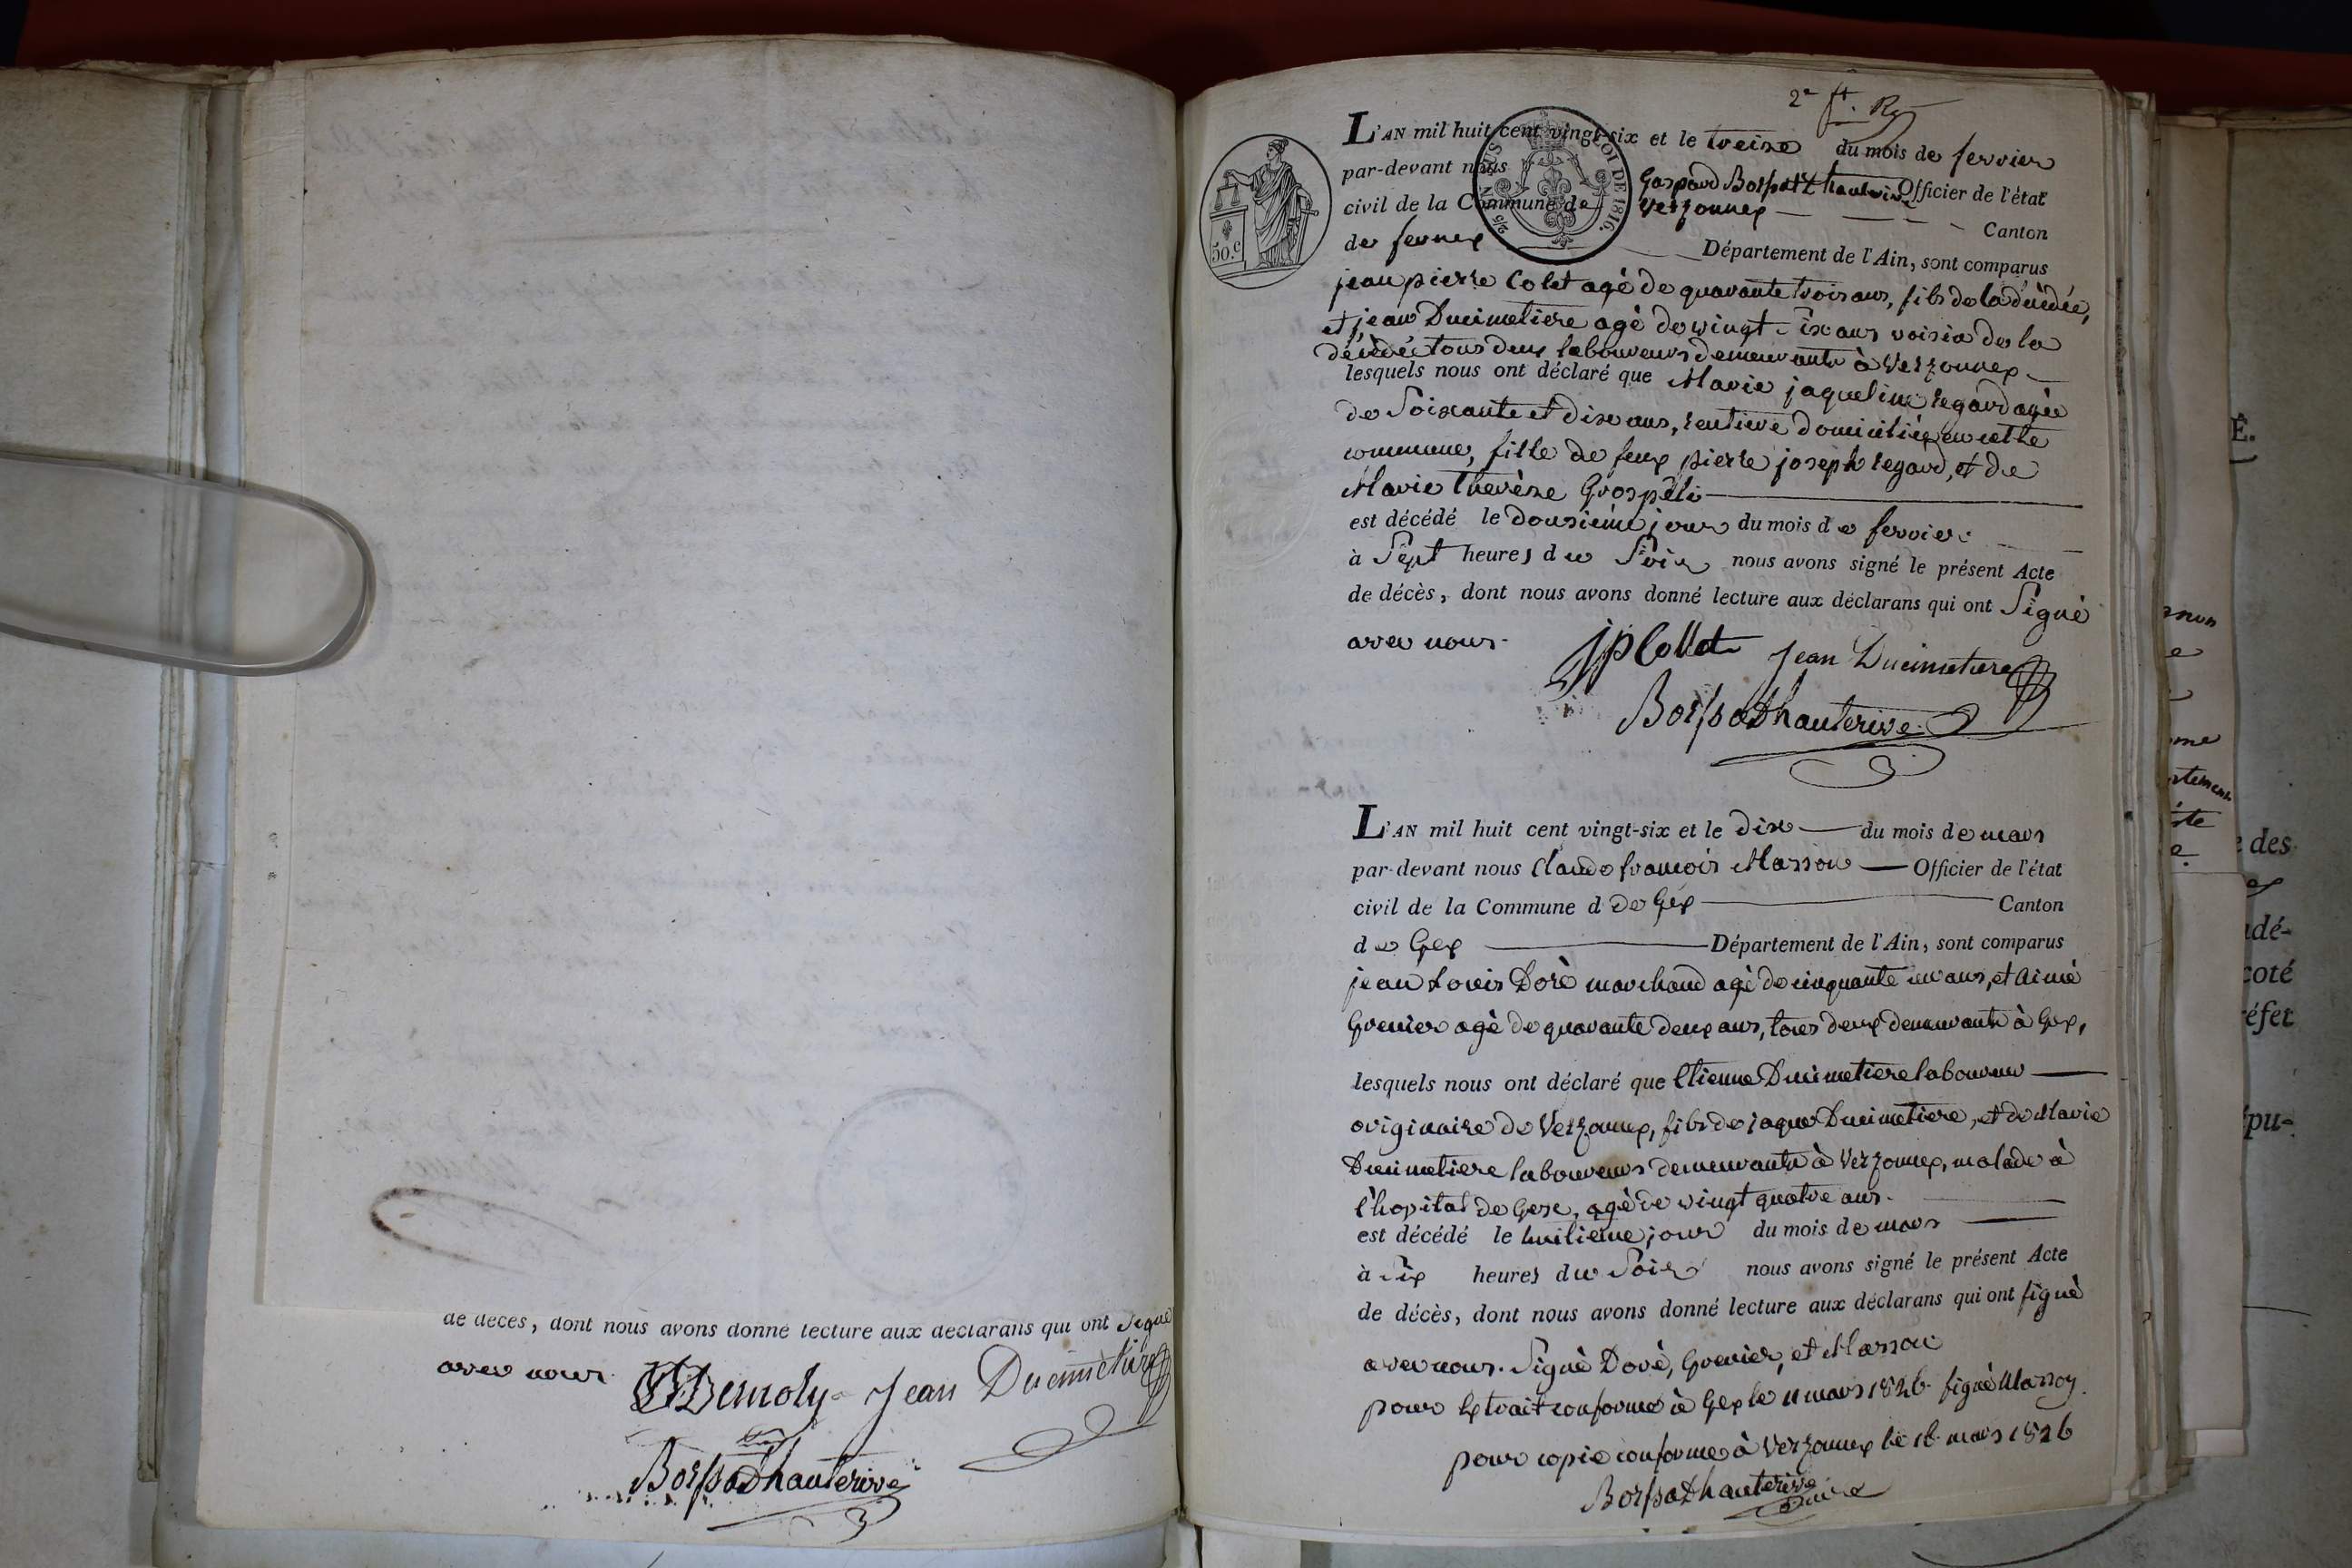 de décès, dont nous avons donné lecture aux déclarans qui ont Signé
avec nous.
Demoly Jean Ducimetière
Borssat Dhauterive
2e
L'AN mil huit cent vingt-six et le treize du mois de fervier
par-devant nous Gaspard Borssat d'hauterive Officier de l'état
civil de la Commune de Verzonnex Canton
de fernex Département de l'Ain, sont comparus
jean pierre Colet agé de quarante trois ans, fils de la décédée,
et jean Ducimetiere agé de vingt-six ans voisin de la
décédée tous deux laboureurs demeurants à Verzonnex
lesquels nous ont déclaré que Marie jaqueline regard agée
de Soixante et dix ans, rentiere domiciliée en cette
commune, fille de feux pierre joseph regard, et de
Marie Therèse Grospéli
est décédé le dousiéme jour du mois de fervier
à Sept heures du Soir nous avons signé le présent Acte
de décès, dont nous avons donné lecture aux déclarans qui ont Signé
avec nous.
JP Collet Jean Ducimetiere
Borssat Dhauterive
50.c
LOI DE 1816.
L'AN mil huit cent vingt-six et le dix du mois de mars
par-devant nous Claude françois Masson Officier de l'état
civil de la Commune d de Gex Canton
de Gex Département de l'Ain, sont comparus
jean Louis Doré marchand agé de cinquante un ans, et Aimé
Grenier agé de quarante deux ans, tous deux demeurants à Gex,
lesquels nous ont déclaré que Etienne Ducimetiere laboureur
originaire de Verzonnex, fils de jaque Ducimetiere, et de Marie
Ducimetiere laboureurs demeurants à Verzonnex, malade à
l'hopital de Gex, agé de vingt quatre ans.
est décédé le huitieme jour du mois de mars
à Six heures du Soir nous avons signé le présent Acte
de décès, dont nous avons donné lecture aux déclarans qui ont signé
avec nous. Signé Doré, Grenier, et Masson
pour Extrait conforme à Gex le 11 mars 1826 signé Masson.
pour copie conforme à Verzonnex le 16 mars 1826
Borssat Dhauterive
maire
É.
des
adé-
coté
éfet
pu-